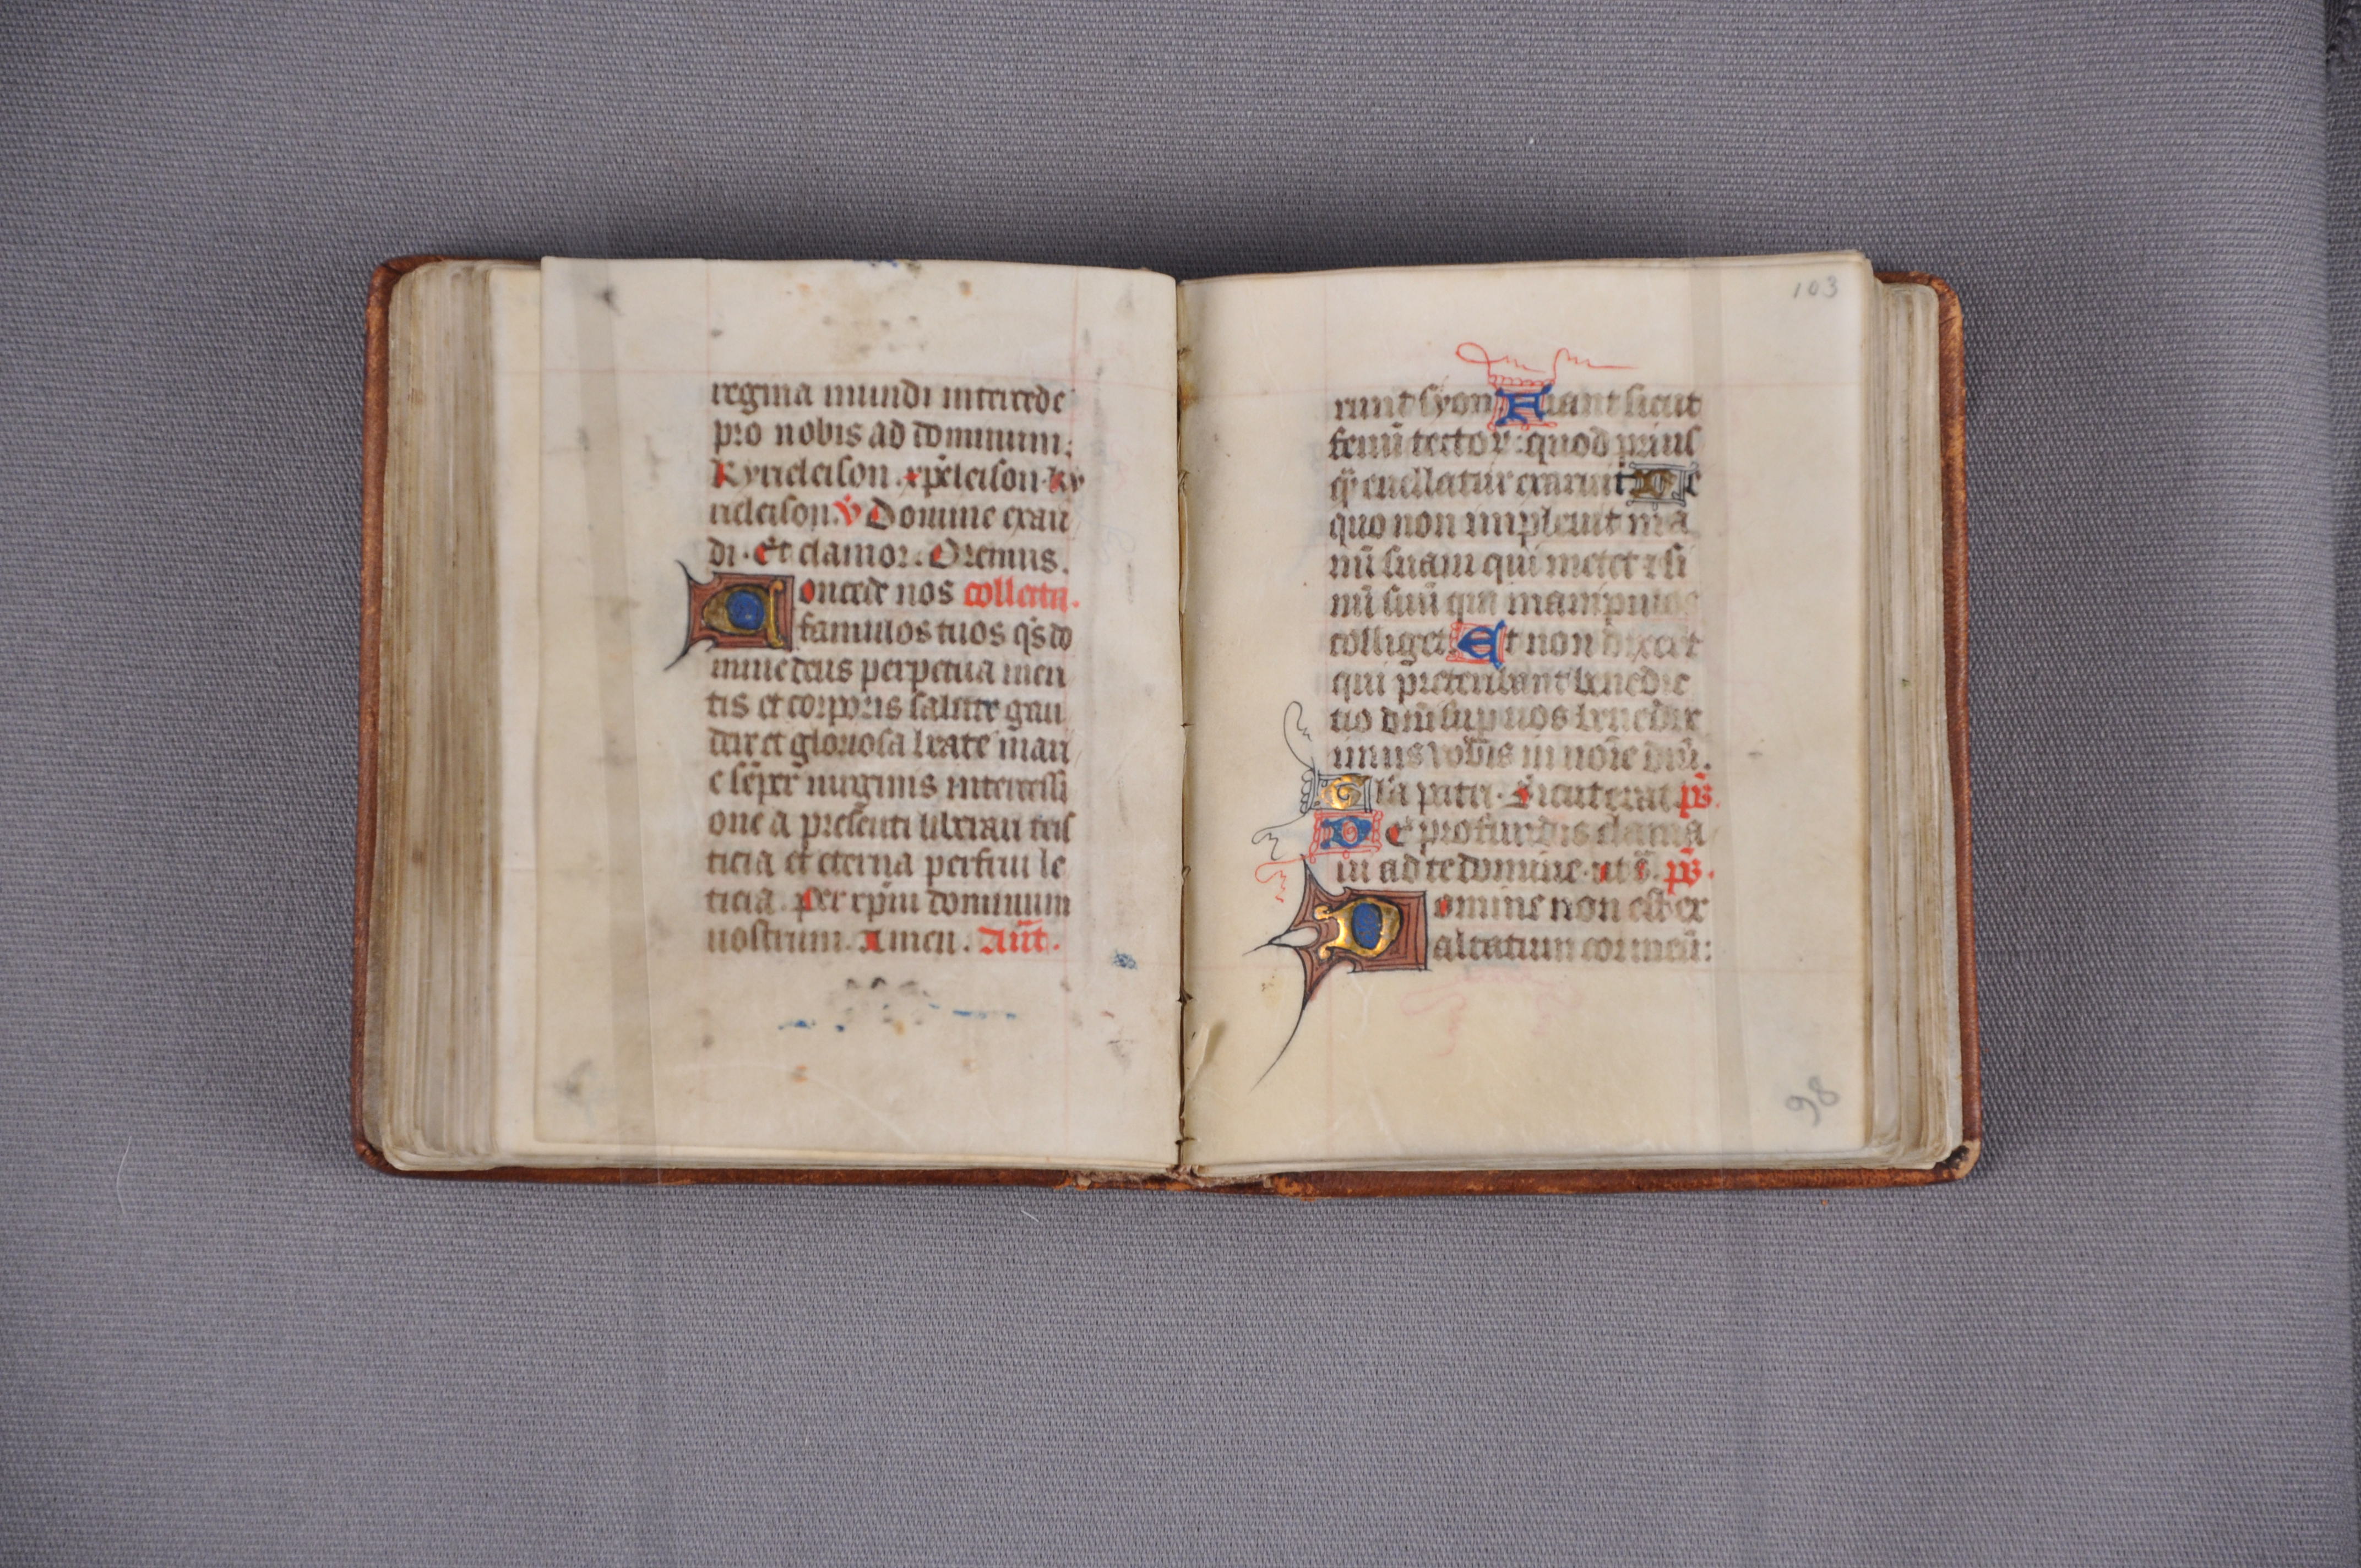 regina mundi intercede
pro nobis ad dominum.
Kyrieleison. xp̄eleison. ky
rieleison. v̄ Domine exau
di. Et clamor. Oremus.
Concede nos collecta.
famulos tuos q̄s do
mine deus perpetua men
tis et corporis salute gau
dere et gloriosa beate mari
e semꝑ uirginis intercessi
one a presenti liberari tris
ticia et eterna perfrui le
ticia. Per xp̄m dominum
nostrum. Amen. Añt.
103
runt syon Fiant sicut
fenū tectoꝝ: quod prius
q̄ euellatur exaruit De
quo non impleuit ma
nū suam qui metet ⁊ si
nū suū qui manipulos
colliget Et non dixerūt
qui preteribant benedic
tio dn̄i sup uos benedixi
mus vobis in noīe dn̄i.
Gl̄a patri. Sicut erat p̄s.
De profundis clama
ui ad te domine. ut s̄. p̄s.
Domine non est ex
altatum cor meū:
98